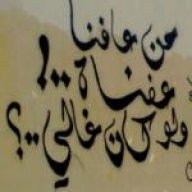 من عافنا
عفناه ..!
ولو كان غالي ..؟